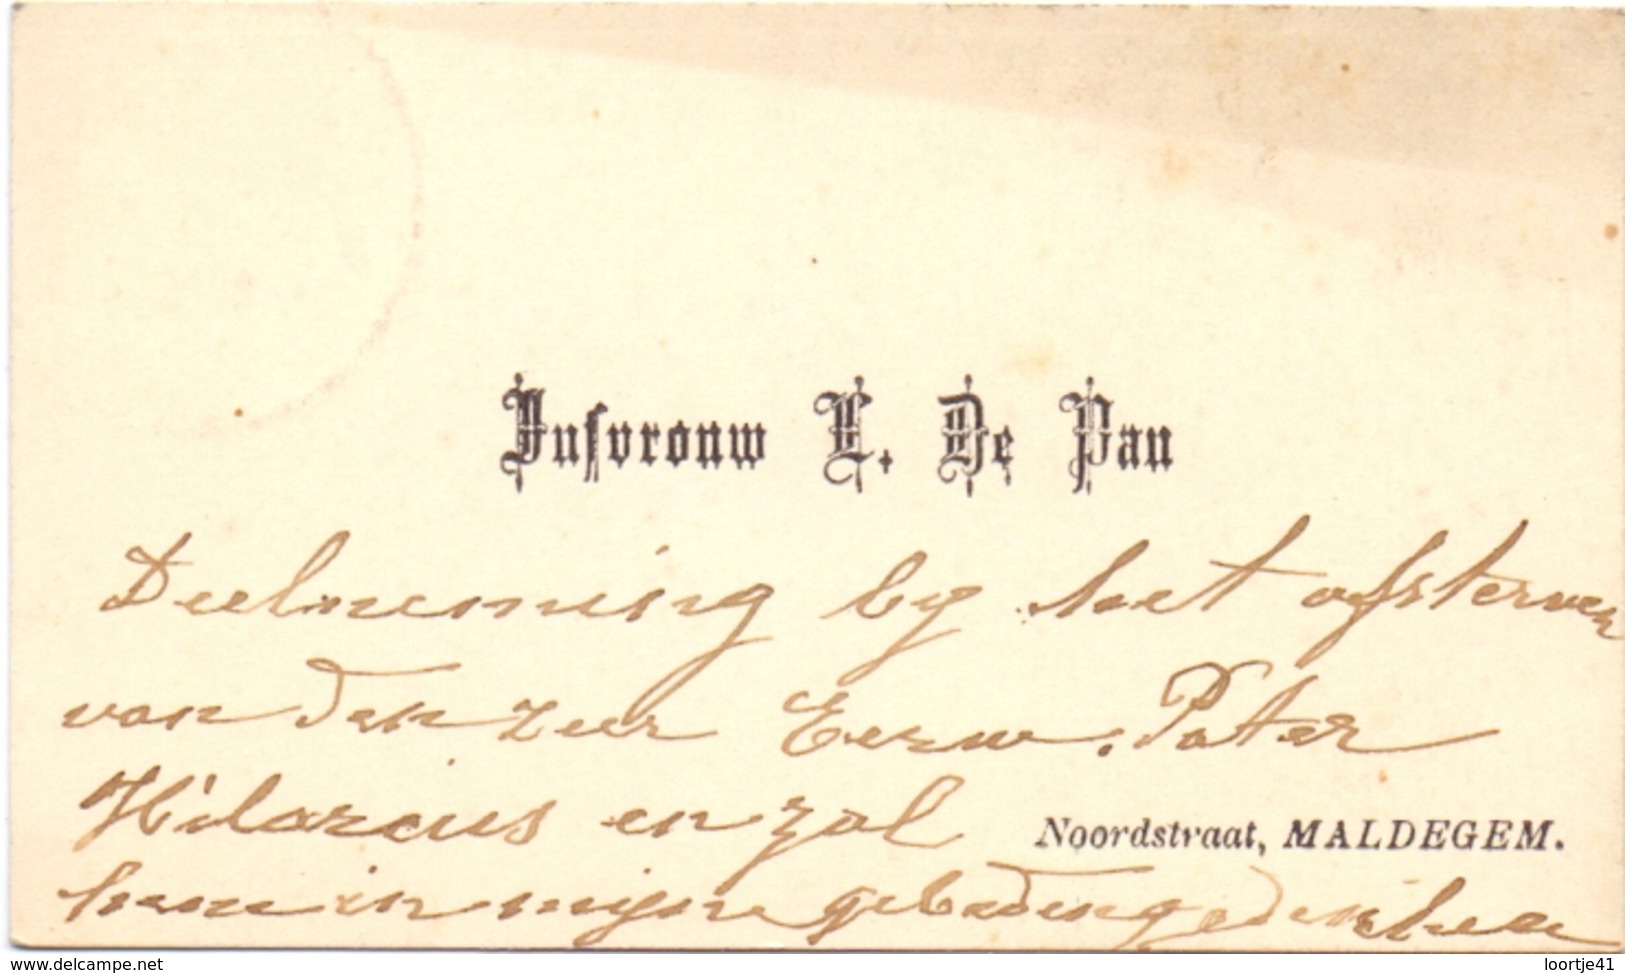 Jufvrouw L. De Pau
Deelneming by het afsterven
van den zeer Eerw. Pater
Hilarius en zal
Noordstraat, MALDEGEM.
hem in mijne gebeden gedenken
www.delcampe.net
loortje41